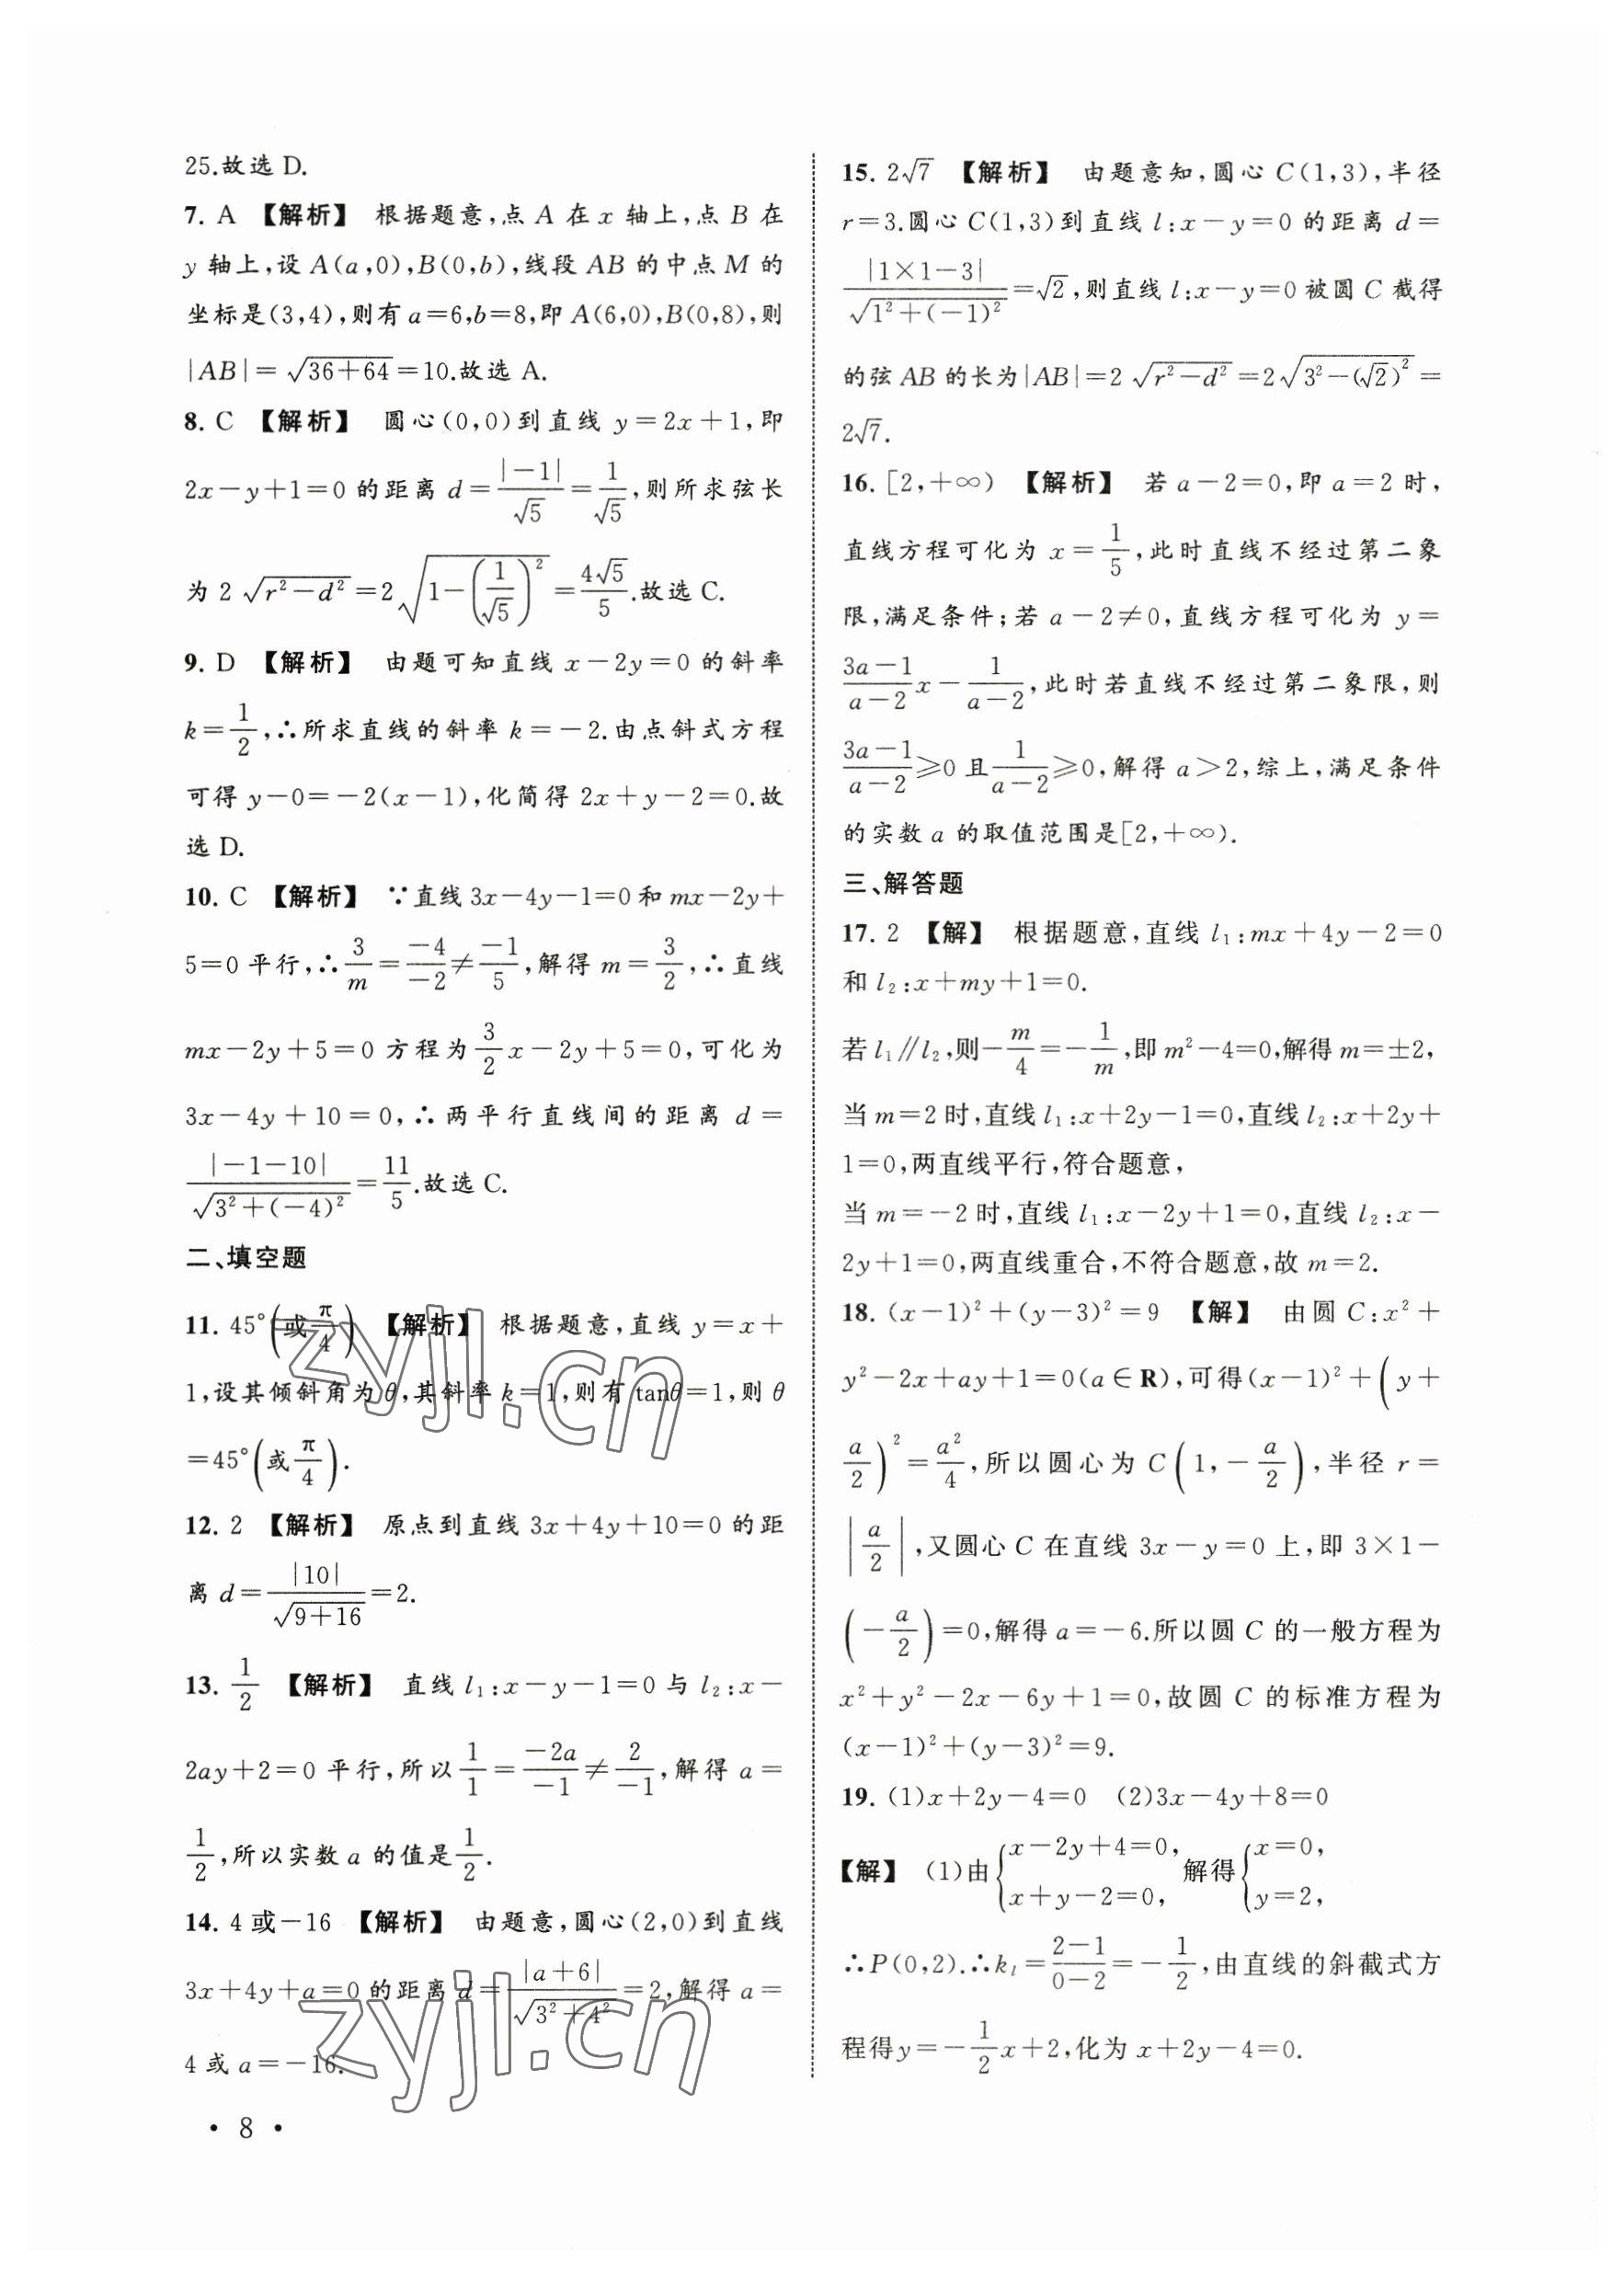 25.故选 D.
7. A 【解析】 根据题意,点 A 在 x 轴上,点 B 在
y 轴上,设 A(a,0),B(0,b),线段 AB 的中点 M 的
坐标是(3,4),则有 a=6,b=8,即 A(6,0),B(0,8),则
|AB|=√(36+64)=10.故选 A.
8. C 【解析】 圆心(0,0)到直线 y=2x+1,即
2x-y+1=0 的距离 d=|-1|/√5=1/√5,则所求弦长
为 2√(r²-d²)=2√(1-(1/√5)²)=4√5/5.故选 C.
9. D 【解析】 由题可知直线 x-2y=0 的斜率
k=1/2,∴所求直线的斜率 k=-2.由点斜式方程
可得 y-0=-2(x-1),化简得 2x+y-2=0.故
选 D.
10. C 【解析】 ∵直线 3x-4y-1=0 和 mx-2y+
5=0 平行,∴3/m=-4/-2≠-1/5,解得 m=3/2,∴直线
mx-2y+5=0 方程为 3/2x-2y+5=0,可化为
3x-4y+10=0,∴两平行直线间的距离 d=
|-1-10|/√(3²+(-4)²)=11/5.故选 C.
二、填空题
11. 45°(或π/4) 【解析】 根据题意,直线 y=x+
1,设其倾斜角为 θ,其斜率 k=1,则有 tanθ=1,则 θ
=45°(或π/4).
12. 2 【解析】 原点到直线 3x+4y+10=0 的距
离 d=|10|/√(9+16)=2.
13. 1/2 【解析】 直线 l₁:x-y-1=0 与 l₂:x-
2ay+2=0 平行,所以1/1=-2a/-1≠2/-1,解得 a=
1/2,所以实数 a 的值是1/2.
14. 4 或-16 【解析】 由题意,圆心(2,0)到直线
3x+4y+a=0 的距离 d=|a+6|/√(3²+4²)=2,解得 a=
4 或 a=-16.
• 8 •
15. 2√7 【解析】 由题意知,圆心 C(1,3),半径
r=3.圆心 C(1,3)到直线 l:x-y=0 的距离 d=
|1×1-3|/√(1²+(-1)²)=√2,则直线 l:x-y=0 被圆 C 截得
的弦 AB 的长为|AB|=2√(r²-d²)=2√(3²-(√2)²)=
2√7.
16. [2,+∞) 【解析】 若 a-2=0,即 a=2 时,
直线方程可化为 x=1/5,此时直线不经过第二象
限,满足条件;若 a-2≠0,直线方程可化为 y=
(3a-1)/(a-2)x-1/(a-2),此时若直线不经过第二象限,则
(3a-1)/(a-2)≥0 且1/(a-2)≥0,解得 a>2,综上,满足条件
的实数 a 的取值范围是[2,+∞).
三、解答题
17. 2 【解】 根据题意,直线 l₁:mx+4y-2=0
和 l₂:x+my+1=0.
若 l₁∥l₂,则-m/4=-1/m,即 m²-4=0,解得 m=±2,
当 m=2 时,直线 l₁:x+2y-1=0,直线 l₂:x+2y+
1=0,两直线平行,符合题意,
当 m=-2 时,直线 l₁:x-2y+1=0,直线 l₂:x-
2y+1=0,两直线重合,不符合题意,故 m=2.
18. (x-1)²+(y-3)²=9 【解】 由圆 C:x²+
y²-2x+ay+1=0(a∈R),可得(x-1)²+(y+
a/2)²=a²/4,所以圆心为 C(1,-a/2),半径 r=
|a/2|,又圆心 C 在直线 3x-y=0 上,即 3×1-
(-a/2)=0,解得 a=-6.所以圆 C 的一般方程为
x²+y²-2x-6y+1=0,故圆 C 的标准方程为
(x-1)²+(y-3)²=9.
19. (1)x+2y-4=0 (2)3x-4y+8=0
【解】 (1)由{x-2y+4=0, x+y-2=0, 解得{x=0, y=2,
∴P(0,2).∴k_l=(2-1)/(0-2)=-1/2,由直线的斜截式方
程得y=-1/2x+2,化为 x+2y-4=0.
zyjl.cn
zyjl.cn